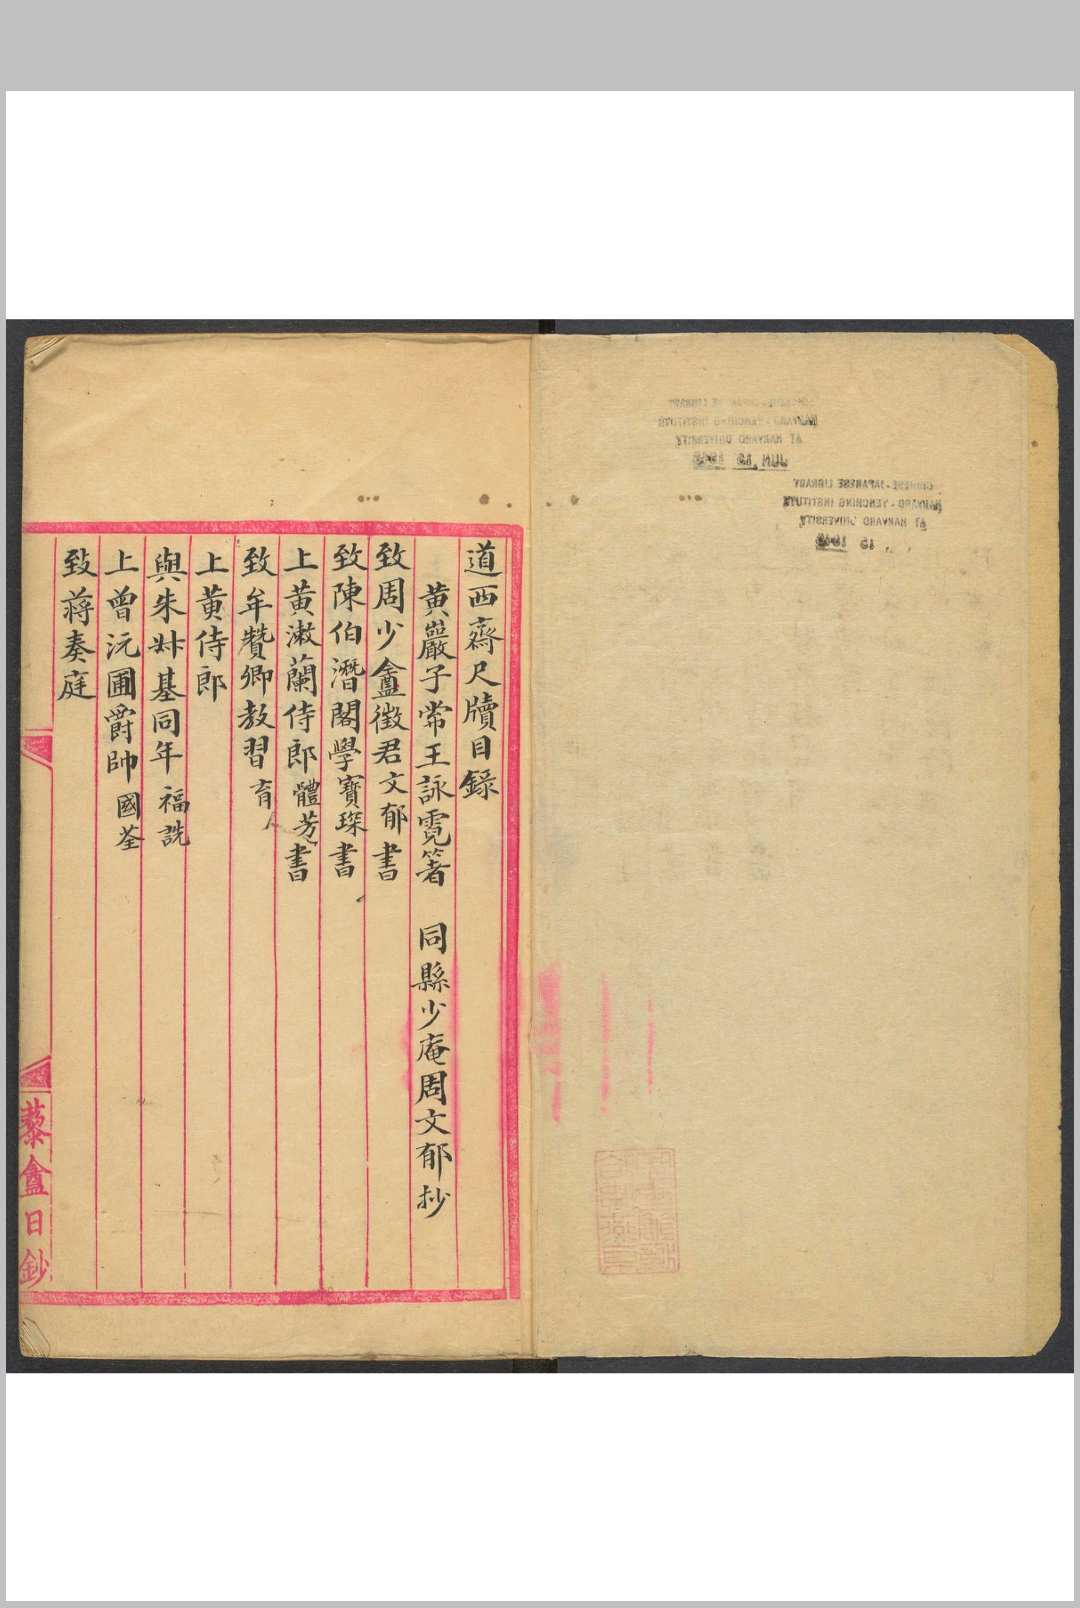 道西齋尺牘目錄
黃巖子常王詠霓箸 同縣少庵周文郁抄
致周少盦徵君文郁書
致陳伯潛閣學寶琛書
上黃漱蘭侍郎體芳書
致牟贊卿教習育
上黃侍郎
與朱叔基同年福詵
上曾沅圃爵帥國荃
致蔣奏庭
藜盦日鈔
CHINESE-JAPANESE LIBRARY
HARVARD-YENCHING INSTITUTE
AT HARVARD UNIVERSITY
CHINESE-JAPANESE LIBRARY
HARVARD-YENCHING INSTITUTE
AT HARVARD UNIVERSITY